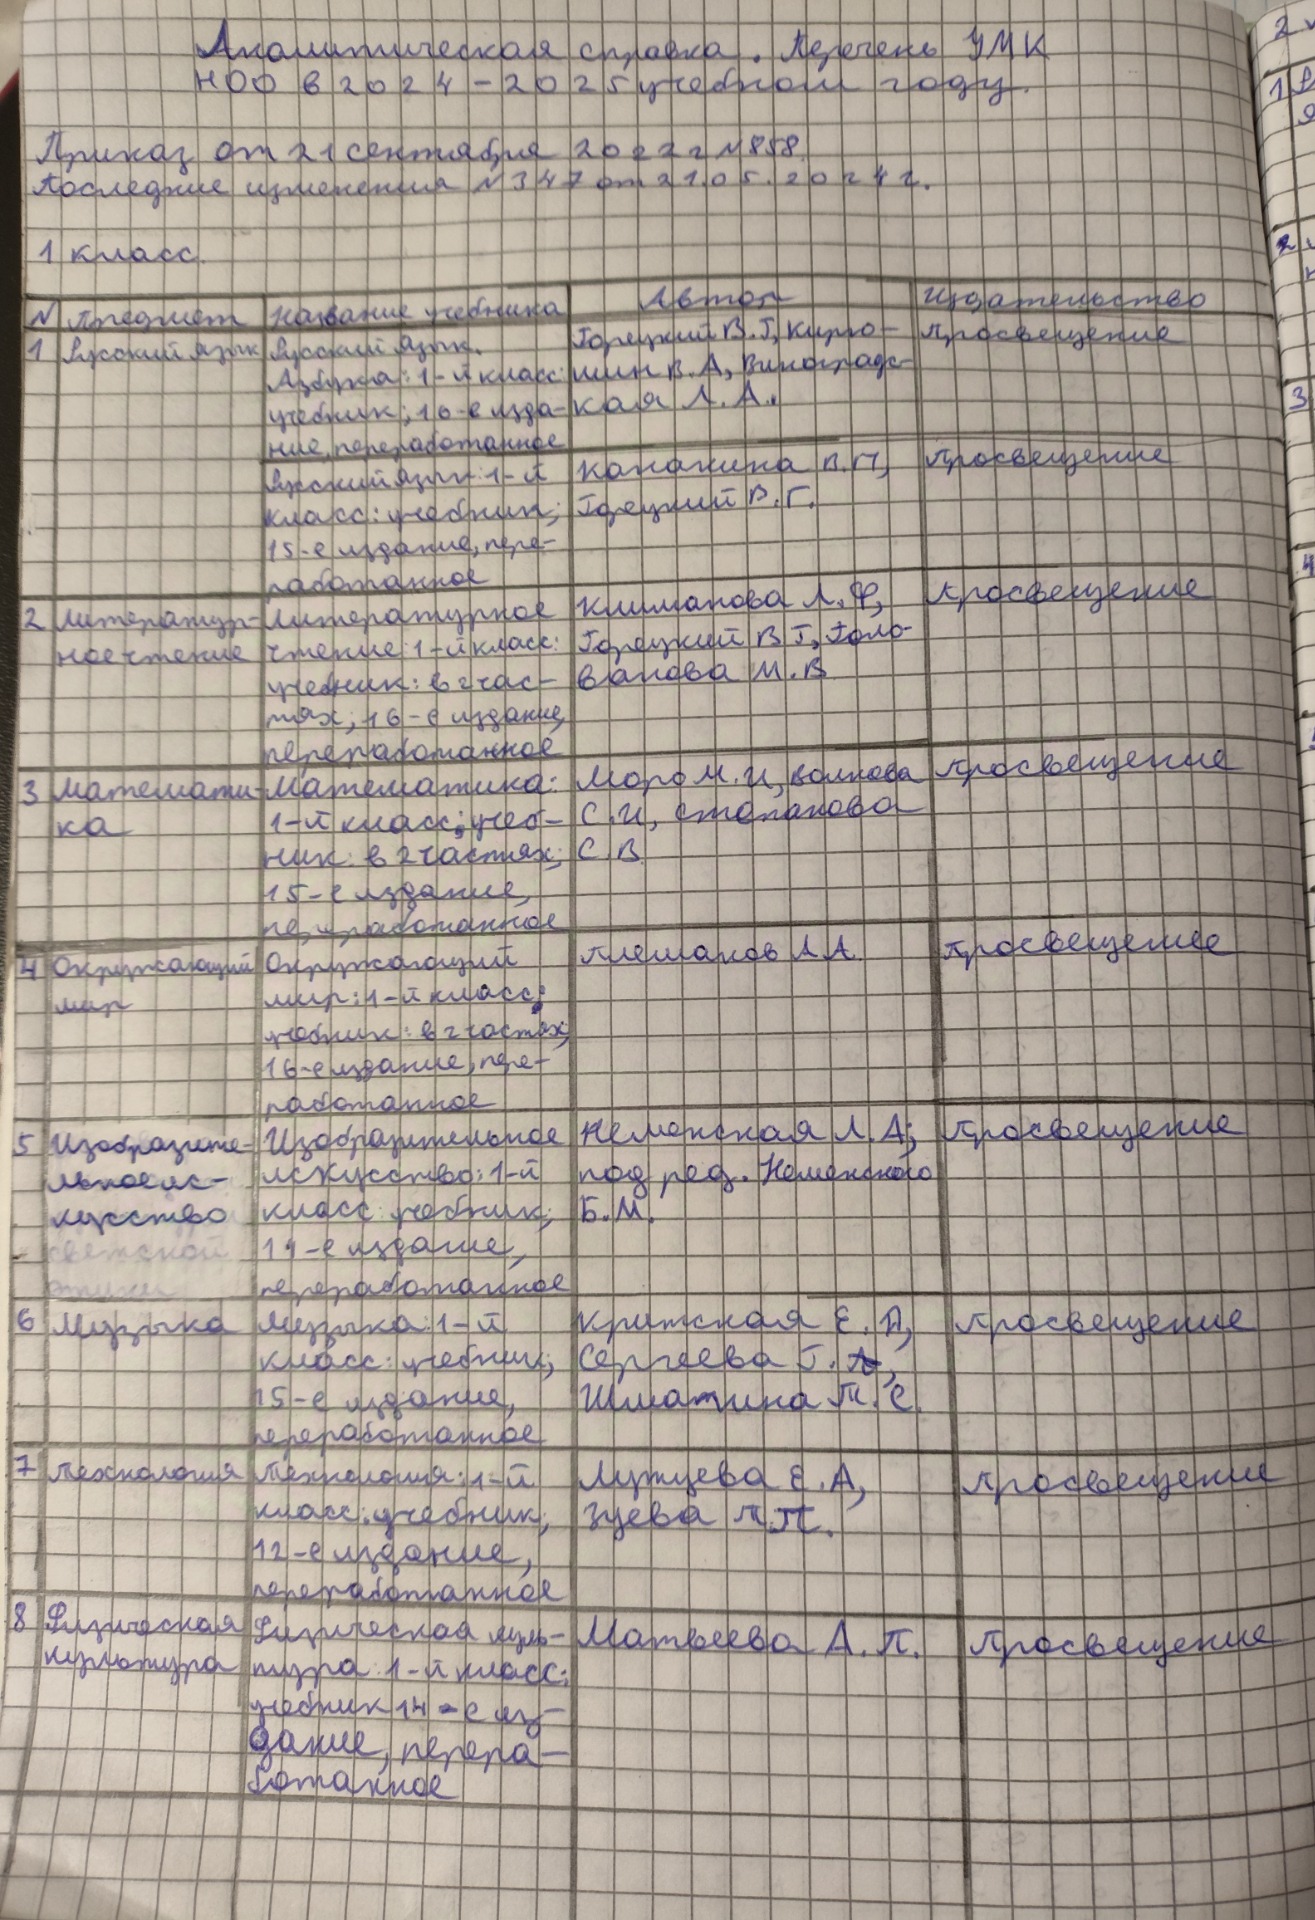 Аналитическая справка. Перечень УМК
НОО в 2024-2025 учебном году.
Приказ от 21 сентября 2022 г №858
Последние изменения №347 от 21.05.2024 г.
1 класс
№ Предмет Название учебника Автор Издательство
1 Русский язык Русский язык. Горецкий В.Г, Кирю- Просвещение
Азбука: 1-й класс: шин В.А, Виноградс-
учебник; 16-е изда- кая Л.А.
ние, переработанное
Русский язык: 1-й Канакина В.П, Просвещение
класс: учебник; Горецкий В.Г.
15-е издание, пере-
работанное
2 Литератур- Литературное Климанова Л.Ф, Просвещение
ное чтение чтение: 1-й класс: Горецкий В.Г, Голо-
учебник: в 2 час- ванова М.В
тях; 16-е издание,
переработанное
3 Математи- Математика: Моро М.И, Волкова Просвещение
ка 1-й класс; учеб- С.И, Степанова
ник: в 2 частях; С.В.
15-е издание,
переработанное
4 Окружающий Окружающий Плешаков А.А. Просвещение
мир мир: 1-й класс:
учебник: в 2 частях,
16-е издание, пере-
работанное
5 Изобразите- Изобразительное Неменская Л.А; Просвещение
льное ис- искусство: 1-й под ред. Неменского
кусство класс: учебник; Б.М.
светской 14-е издание,
этики переработанное
6 Музыка Музыка: 1-й Критская Е.Д, Просвещение
класс: учебник; Сергеева Г.П,
15-е издание, Шмагина Т.С.
переработанное
7 Технология Технология: 1-й Лутцева Е.А, Просвещение
класс: учебник; Зуева Т.П.
12-е издание,
переработанное
8 Физическая Физическая куль- Матвеева А.П. Просвещение
культура тура: 1-й класс:
учебник 14-е из-
дание, перера-
ботанное